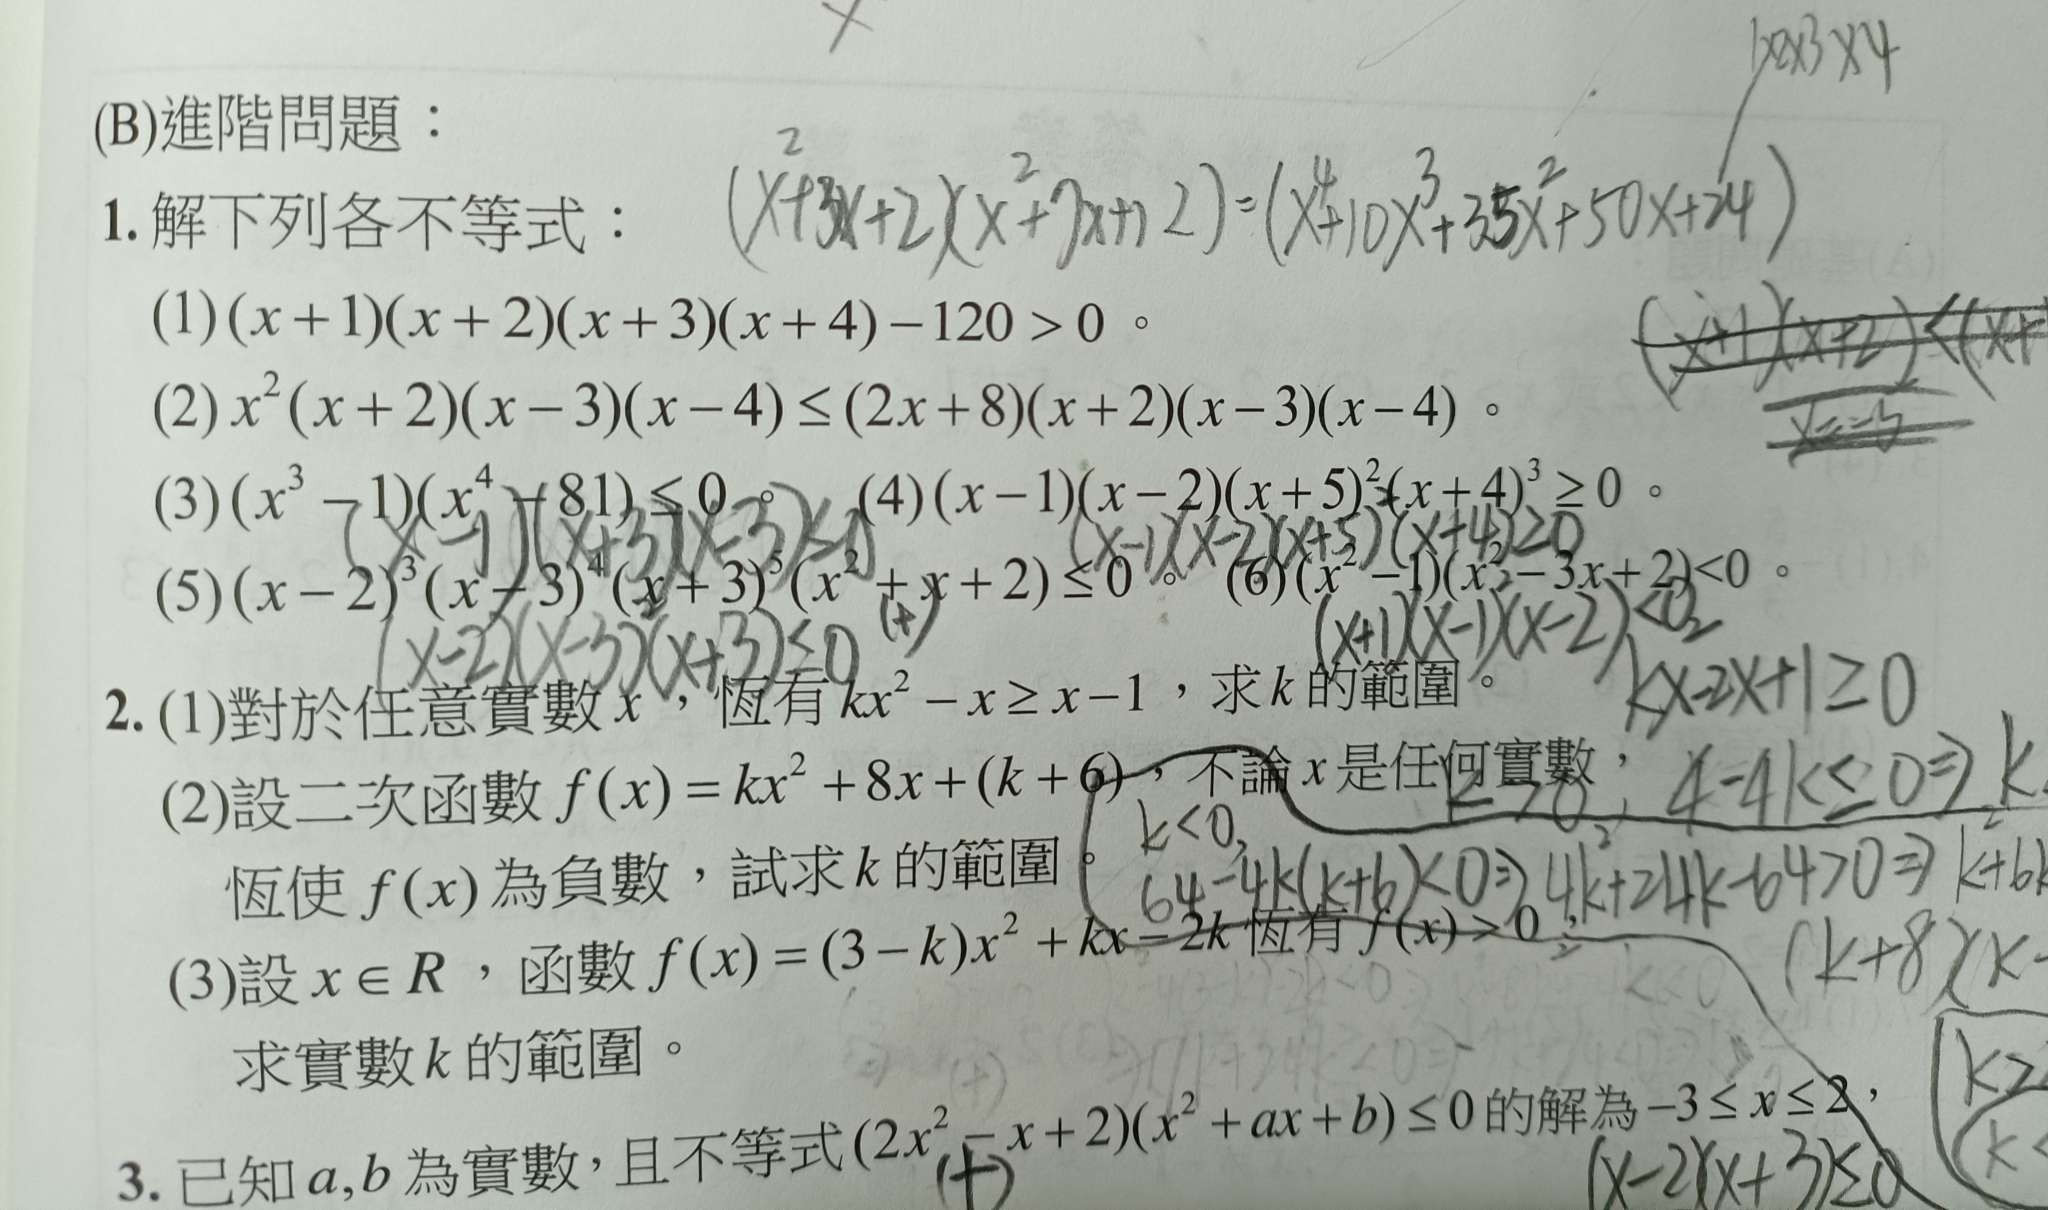 1x2x3x4
(B)進階問題：
(x²+3x+2)(x²+7x+12)=(x⁴+10x³+35x²+50x+24)
1. 解下列各不等式：
(1) (x+1)(x+2)(x+3)(x+4)−120>0。
(x+1)(x+2)<(x+
(2) x²(x+2)(x−3)(x−4)≤(2x+8)(x+2)(x−3)(x−4)。
(3) (x³−1)(x⁴−81)≤0。 (4) (x−1)(x−2)(x+5)²(x+4)³≥0。
(x−1)(x+3)(x−3)≤0 (x−1)(x−2)(x+5)(x+4)≥0
(5) (x−2)³(x−3)⁴(x+3)⁵(x²+x+2)≤0。 (6) (x²−1)(x²−3x+2)<0。
(x−2)(x−3)(x+3)≤0 (+) (x+1)(x−1)(x−2)<0
kx²−2x+1≥0
2. (1)對於任意實數x，恆有kx²−x≥x−1，求k的範圍。
k>0, 4−4k≤0⇒k
(2)設二次函數f(x)=kx²+8x+(k+6)，不論x是任何實數，
k<0,
恆使f(x)為負數，試求k的範圍。
64−4k(k+6)<0⇒4k²+24k−64>0⇒k²+6k
(k+8)(k−
(3)設x∈R，函數f(x)=(3−k)x²+kx−2k恆有f(x)>0，
求實數k的範圍。
k>2
k<
3. 已知a,b為實數，且不等式(2x²−x+2)(x²+ax+b)≤0的解為−3≤x≤2，
(+) (x−2)(x+3)≤0